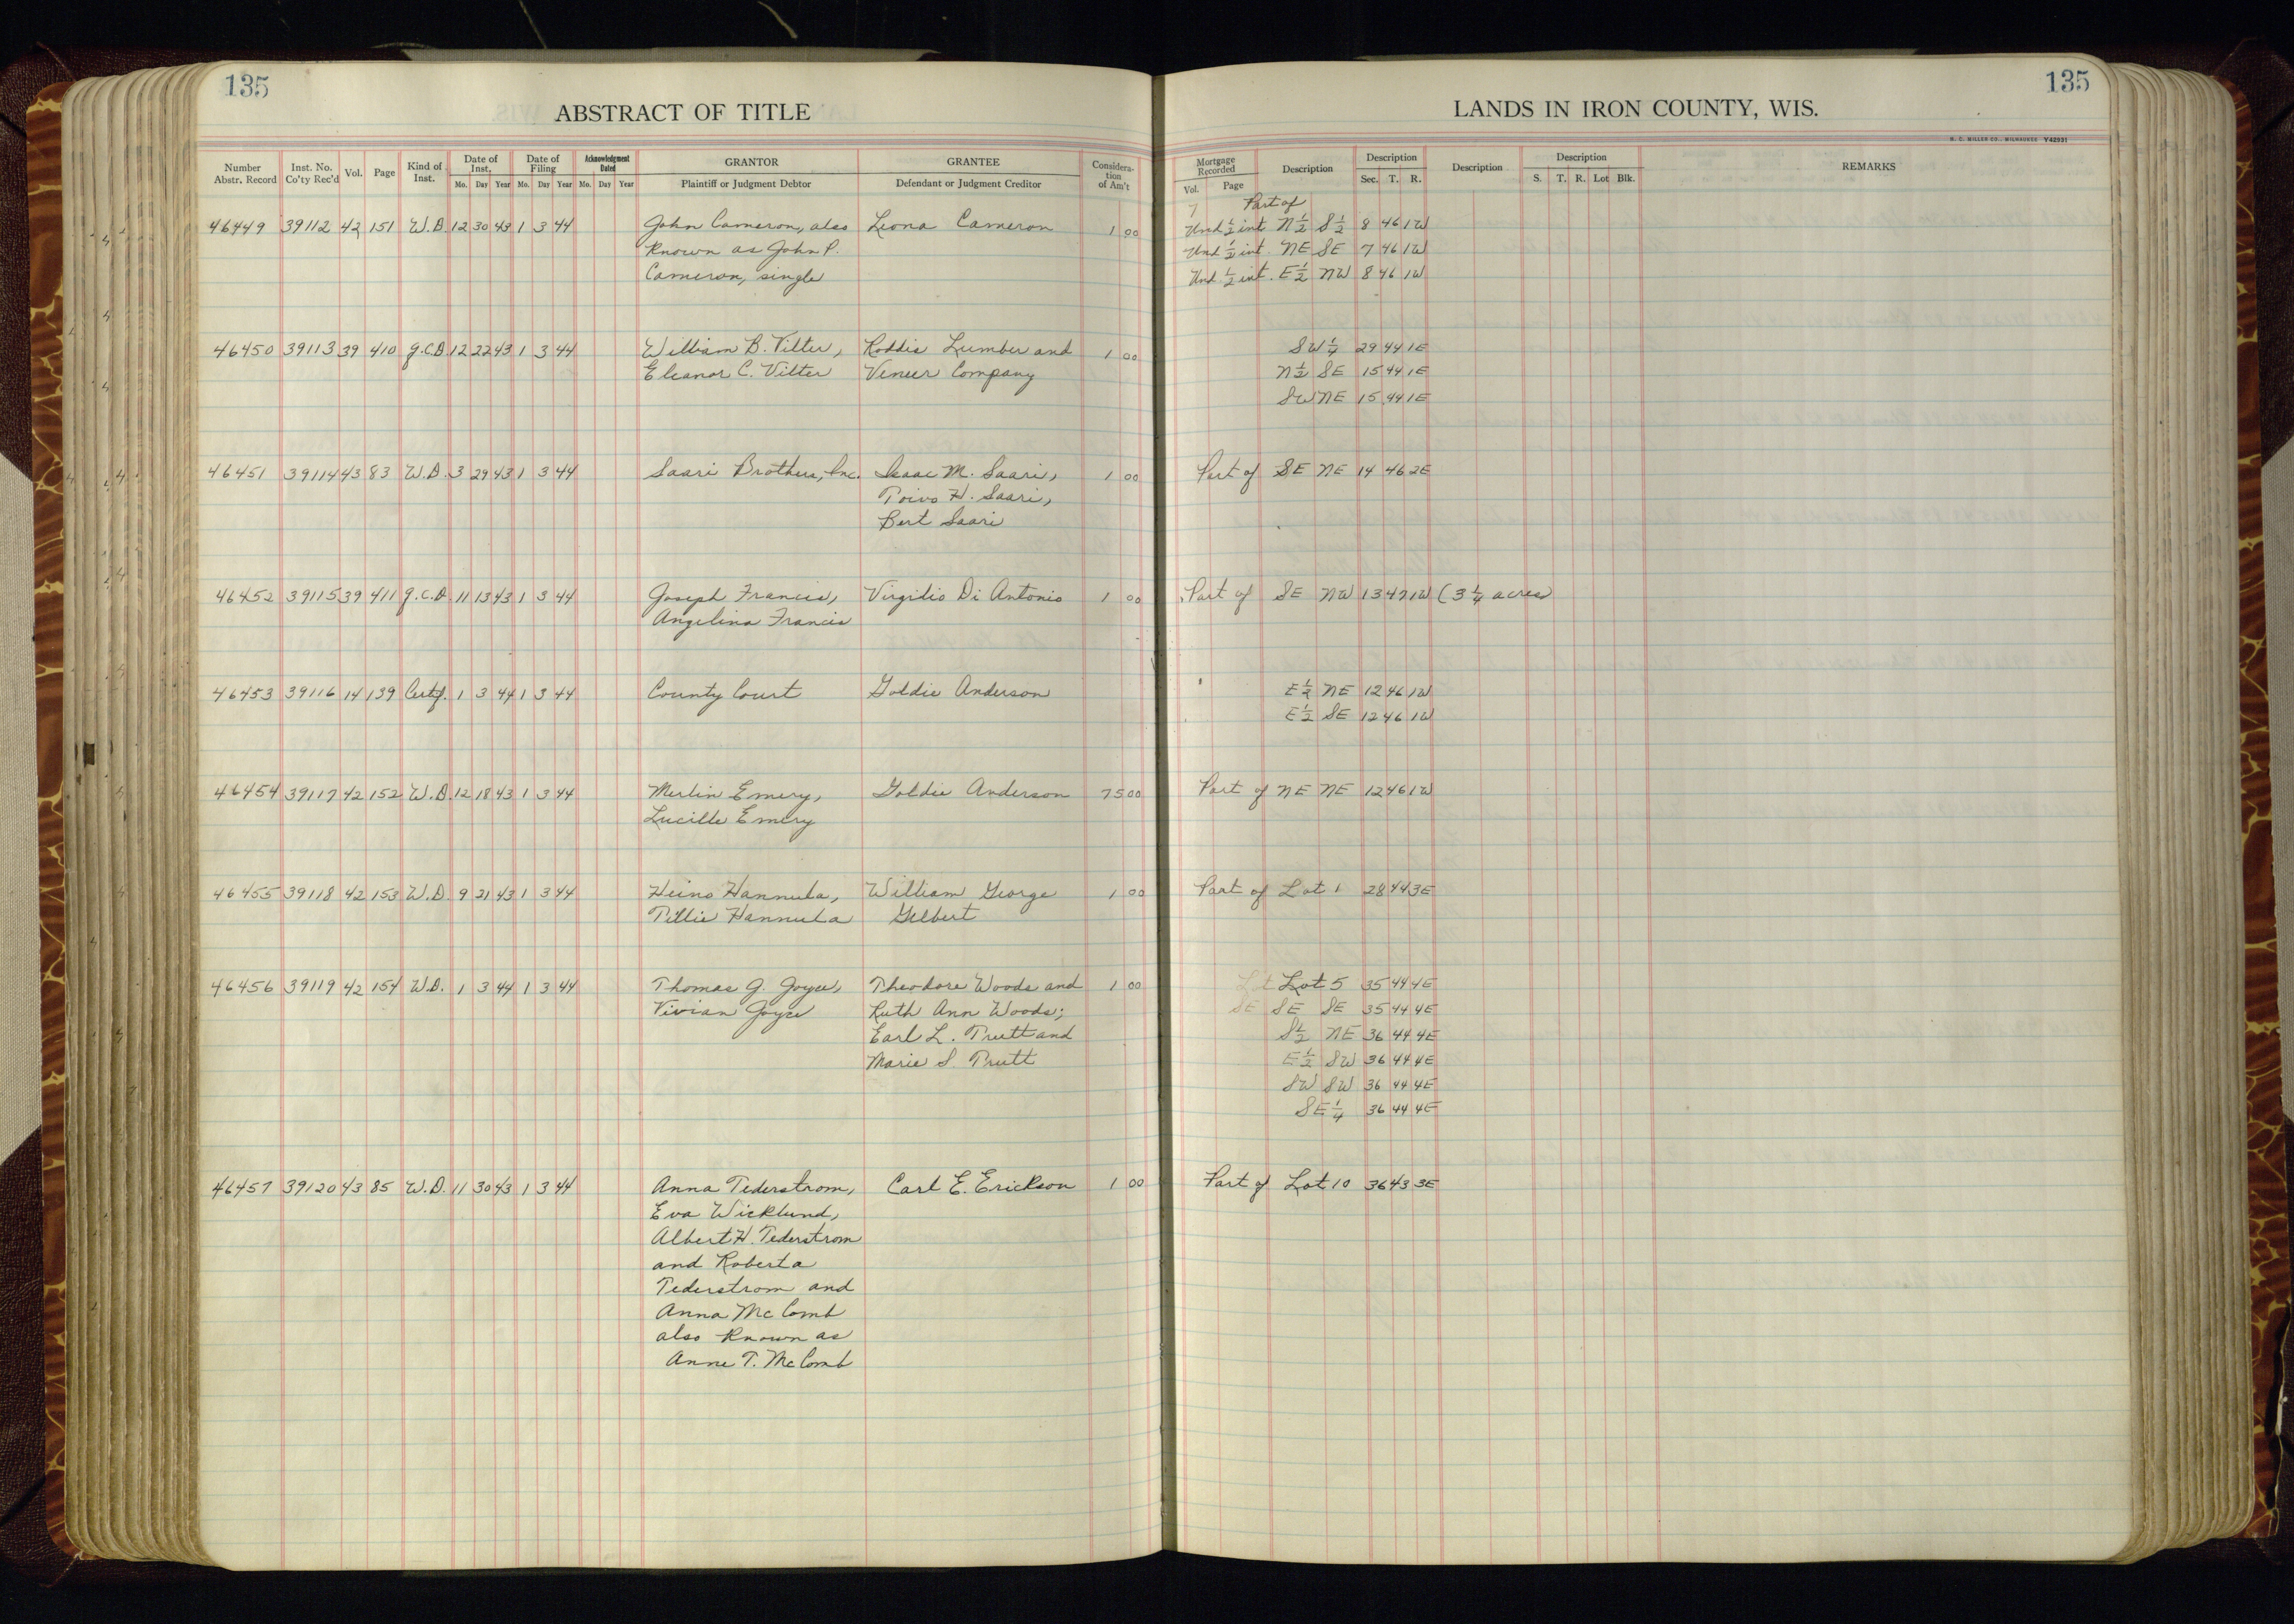 135
ABSTRACT OF TITLE
Number Abstr. Record | Inst. No. Co'ty Rec'd | Vol. | Page | Kind of Inst. | Date of Inst. Mo. Day Year | Date of Filing Mo. Day Year | Acknowledgment Dated Mo. Day Year | GRANTOR Plaintiff or Judgment Debtor | GRANTEE Defendant or Judgment Creditor | Consideration of Am't
46449 39112 42 151 W.D 12 30 43 1 3 44 John Cameron, also Leona Cameron 1 00
known as John P.
Cameron, single
46450 39113 39 410 q.C.D 12 22 43 1 3 44 William B. Vilter, Roddis Lumber and 1 00
Eleanor C. Vilter Veneer Company
46451 39114 43 83 W.D. 3 29 43 1 3 44 Saari Brothers, Inc. Isaac M. Saari, 1 00
Toivo H. Saari,
Bert Saari
46452 39115 39 411 q.C.D. 11 13 43 1 3 44 Joseph Francis, Virgilio Di Antonio 1 00
Angelina Francis
46453 39116 14 139 Certf. 1 3 44 1 3 44 County Court Goldie Anderson
46454 39117 42 152 W.D. 12 18 43 1 3 44 Merlin Emery, Goldie Anderson 75 00
Lucille Emery
46455 39118 42 153 W.D. 9 21 43 1 3 44 Heino Hannula, William George 1 00
Tillie Hannula Gilbert
46456 39119 42 154 W.D. 1 3 44 1 3 44 Thomas G. Joyce, Theodore Woods and 1 00
Vivian Joyce Ruth Ann Woods;
Earl L. Trutt and
Marie S. Trutt
46457 39120 43 85 W.D. 11 30 43 1 3 44 Anna Tederstrom, Carl E. Erickson 1 00
Eva Wicklund,
Albert H. Tederstrom
and Roberta
Tederstrom and
Anna McComb
also known as
Anne T. McComb
135
LANDS IN IRON COUNTY, WIS.
H. C. MILLER CO., MILWAUKEE Y42931
Mortgage Recorded Vol. Page | Description | Description Sec. T. R. | Description | Description S. T. R. Lot Blk. | REMARKS
7 Part of
Und ½ int N½ S½ 8 46 1W
Und ½ int. NE SE 7 46 1W
Und. ½ int. E½ NW 8 46 1W
SW¼ 29 44 1E
N½ SE 15 44 1E
SW NE 15 44 1E
Part of SE NE 14 46 2E
Part of SE NW 13 47 1W (3¼ acres)
E½ NE 12 46 1W
E½ SE 12 46 1W
Part of NE NE 12 46 1W
Part of Lot 1 28 44 3E
Lot Lot 5 35 44 4E
SE SE SE 35 44 4E
S½ NE 36 44 4E
E½ SW 36 44 4E
SW SW 36 44 4E
SE¼ 36 44 4E
Part of Lot 10 36 43 3E